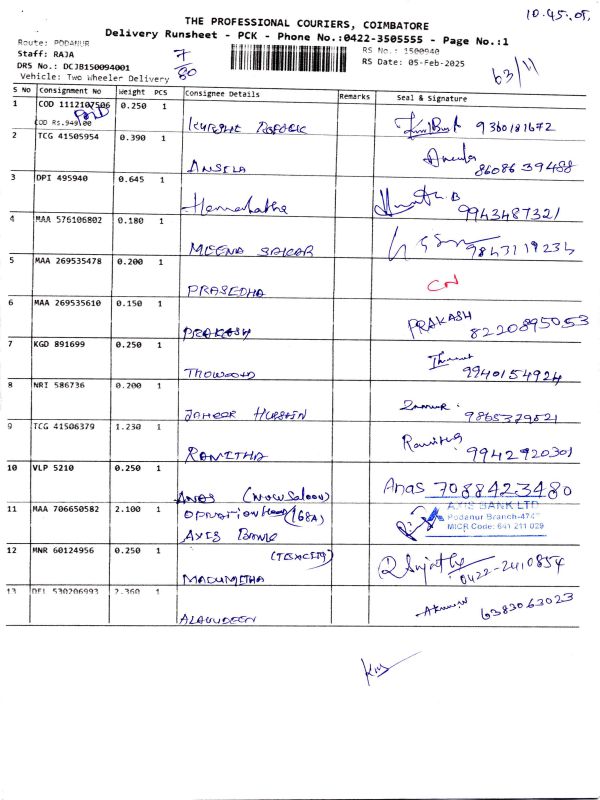 10.45.05.
THE PROFESSIONAL COURIERS, COIMBATORE
Delivery Runsheet - PCK - Phone No.:0422-3505555 - Page No.:1
Route: PODANUR
Staff: RAJA
DRS No.: DCJB150094001
Vehicle: Two Wheeler Delivery
7/80
RS No.: 1500940
RS Date: 05-Feb-2025
63/11
S No Consignment No Weight PCS Consignee Details Remarks Seal & Signature
1 COD 1112107506 0.250 1
COD Rs.949.00 9360181672
2 TCG 41505954 0.390 1
ANSILA 8608639488
3 DPI 495940 0.645 1
Hemalatha 9943487321
4 MAA 576106802 0.180 1
MEENA 9843119234
5 MAA 269535478 0.200 1
PRASEDHA CN
6 MAA 269535610 0.150 1
PRAKASH PRAKASH 8220895053
7 KGD 891699 0.250 1
9940154924
8 NRI 586736 0.200 1
JAHEER HUSSAIN 9865379521
9 TCG 41506379 1.230 1
RANITHA 9942920301
10 VLP 5210 0.250 1
ANAS Anas 7088423480
11 MAA 706650582 2.100 1
(168A)
AXIS Bank
AXIS BANK LTD
Podanur Branch-474
MICR Code: 641 211 029
12 MNR 60124956 0.250 1
MADUMITHA 0422-2410854
13 DEL 530206993 2.360 1
ALAVUDEEN 6383063023